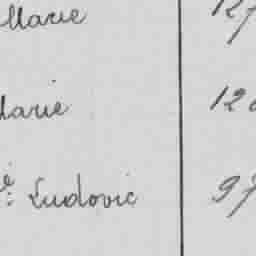 Marie 127
Marie 12
é: Ludovic 97